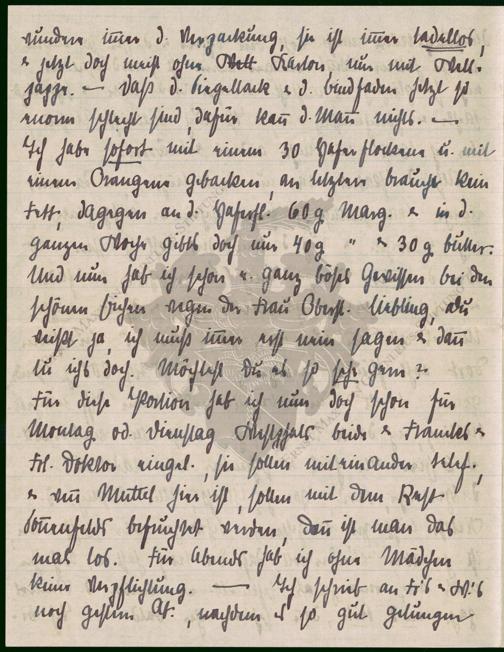 wundere immer d. Verpackung, sie ist immer tadellos,
& jetzt doch meist ohne Karton nur mit Well-
pappe. — Daß d. Siegellack & d. Bindfaden jetzt so
enorm schlecht sind, dafür kann d. Mann nichts. —
Ich habe sofort mit einem 30 Haferflockene u. mit
einem Orangene gebacken, an letztern braucht kein
Fett, dagegen an d. Haferfl. 60 g Marg. & in d.
ganzen Woche gibts doch nur 40 g " & 30 g Butter.
Und nun hab ich schon n. ganz böses Gewissen bei den
schönen wegen der Frau Oberst. Liebling, du
weißt ja, ich muß immer erst nein sagen & dann
tu ichs doch. Möchtest Du es so sehr gern?
Für diese Portion hab ich nun doch schon für
Montag od. Dienstag Westphals beide & Francks &
Frl. Doktor eingel., sie sollen miteinander telef.,
& wenn Muttel hier ist, sollen mit dem Rest
Sonnenfelds befruchtet werden, dann ist man das
mal los. Für Abends hab ich ohne Mädchen
keine Verpflichtung. — Ich schrieb an Fr's &
noch gestern Ab., nachdem es so gut gelungen